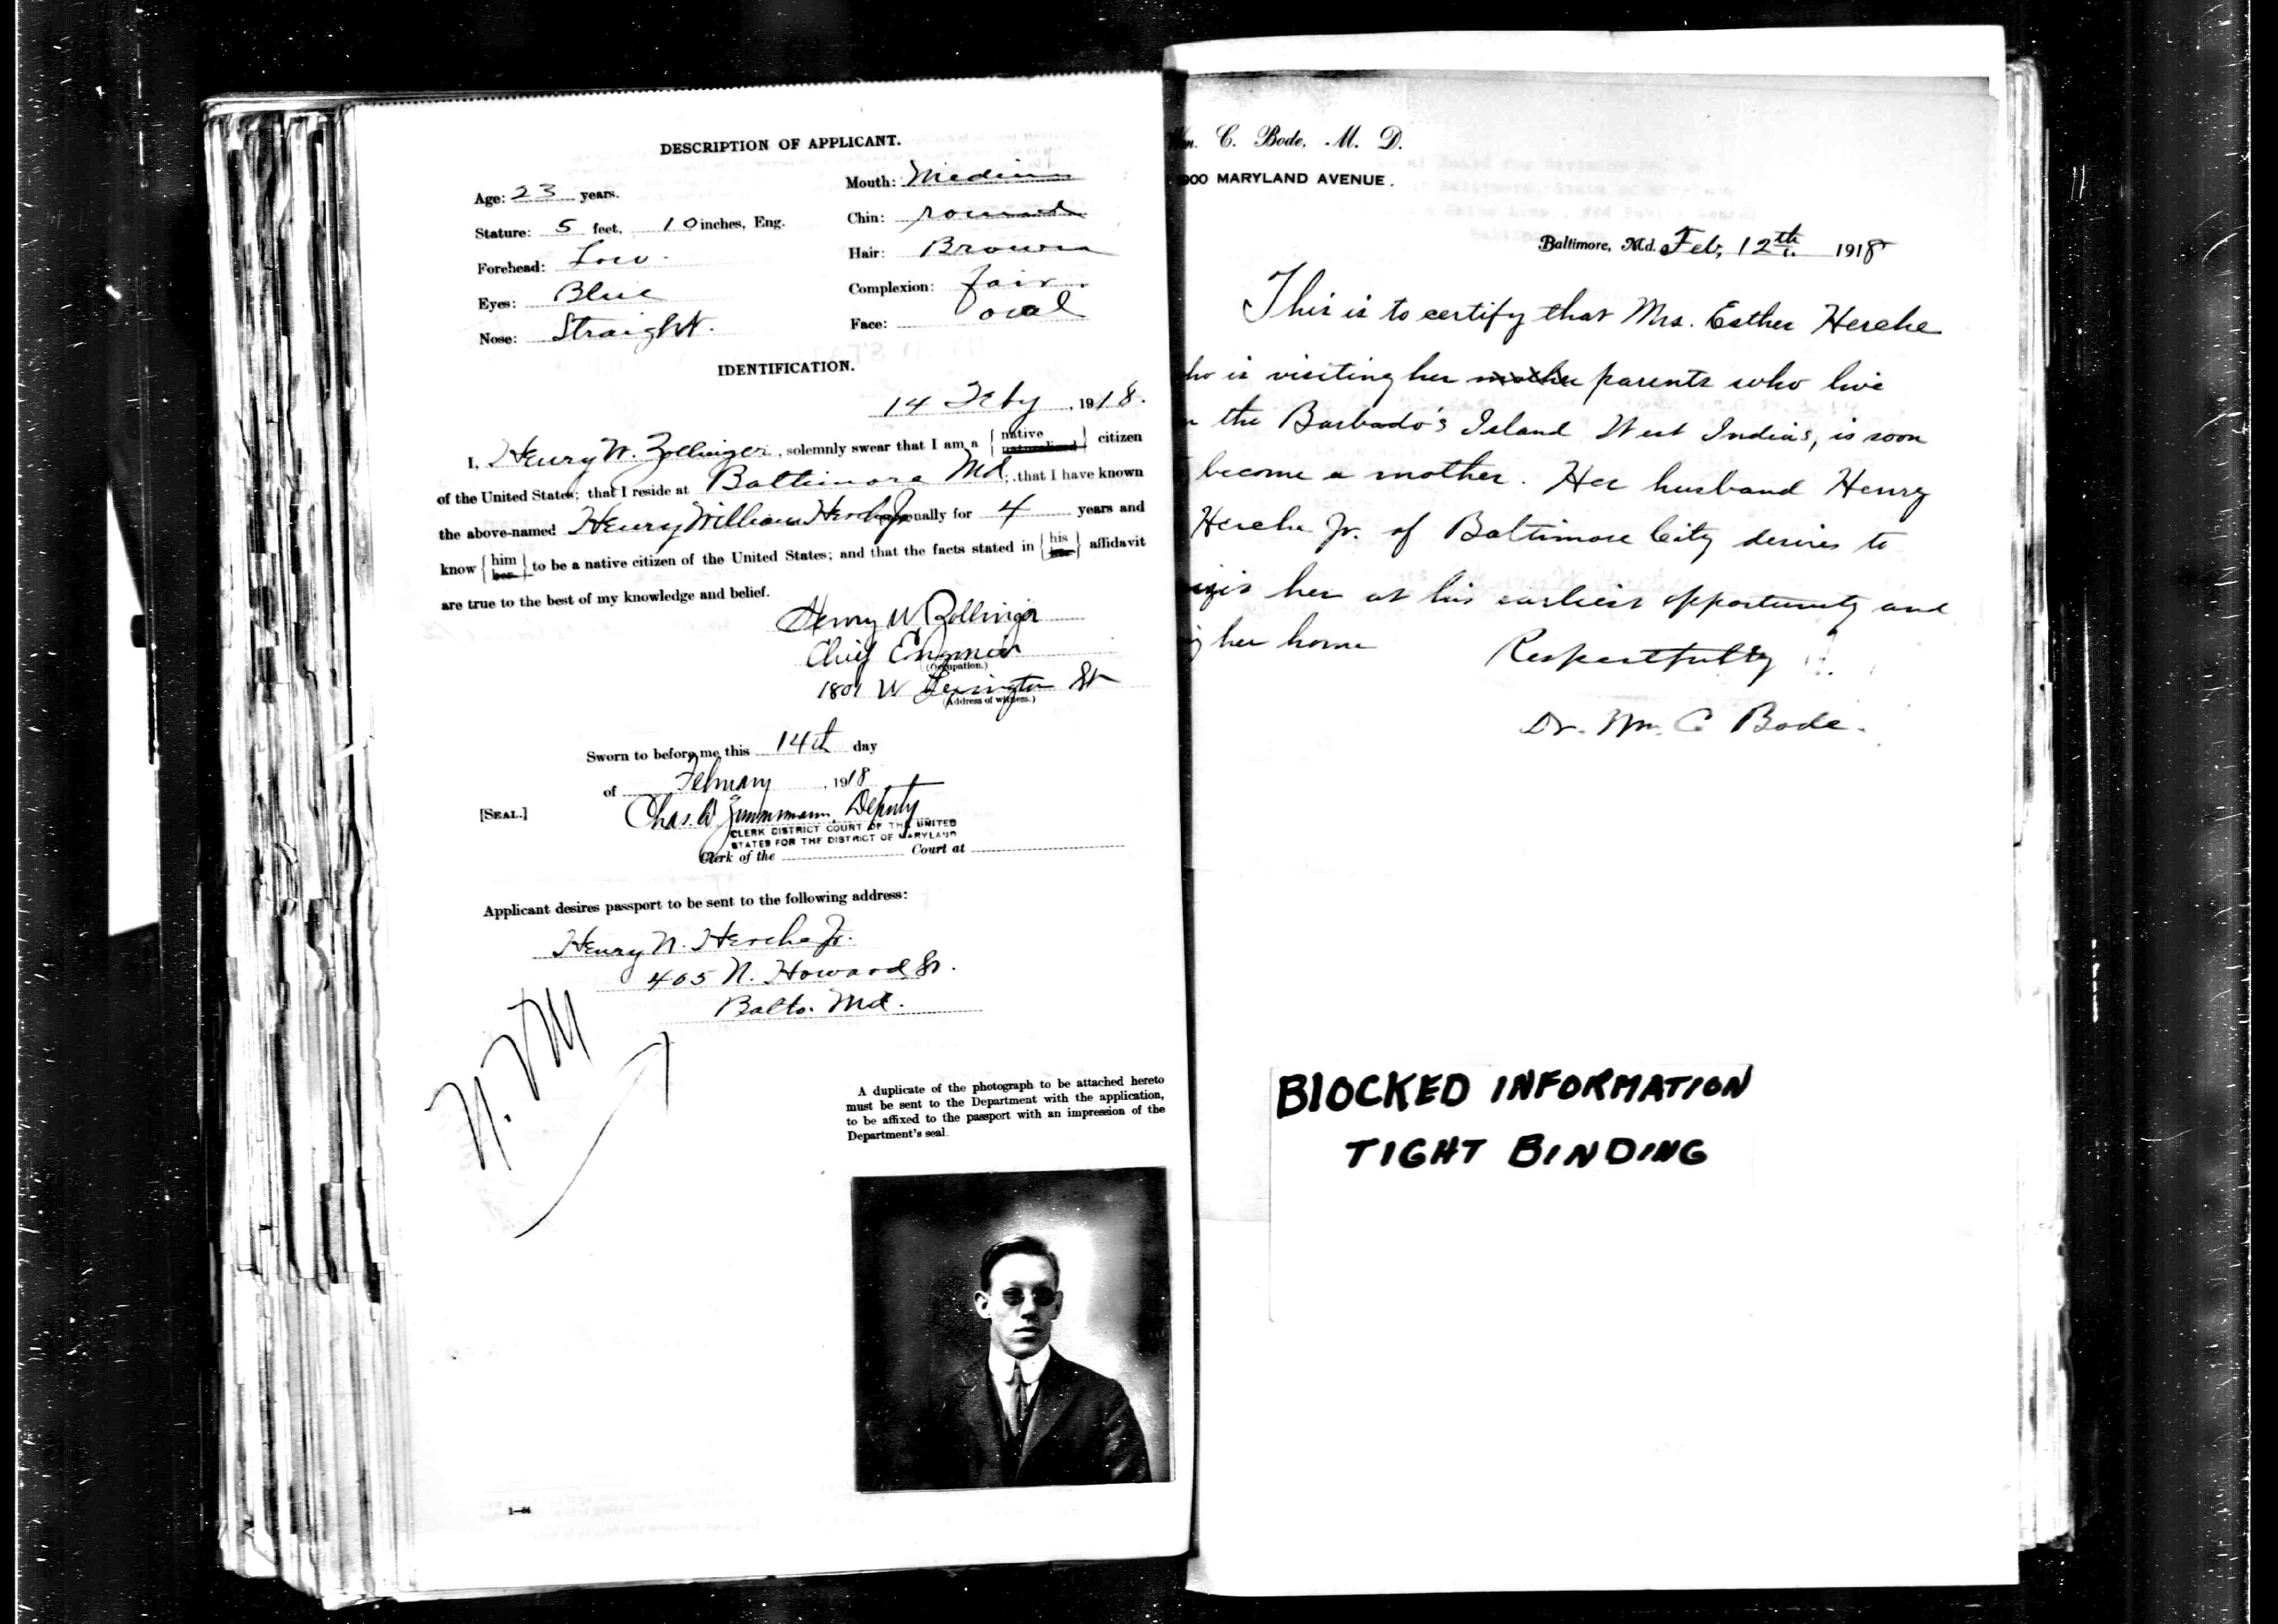 DESCRIPTION OF APPLICANT.
Age: 23 years.
Mouth: Medium
Stature: 5 feet, 10 inches, Eng.
Chin: round
Forehead: Low.
Hair: Brown
Eyes: Blue
Complexion: fair.
Nose: Straight.
Face: oval
IDENTIFICATION.
14 Feby, 1918.
I, Henry W. Zollinger, solemnly swear that I am a { native naturalized } citizen
of the United States; that I reside at Baltimore Md.; that I have known
the above-named Henry William Herche Jr personally for 4 years and
know { him her } to be a native citizen of the United States; and that the facts stated in { his her } affidavit
are true to the best of my knowledge and belief.
Henry W Zollinger
Chief Engineer
(Occupation.)
1801 W Lexington St
(Address of witness.)
Sworn to before me this 14th day
of February, 1918
[SEAL.]
Chas. W Zimmermann, Deputy
CLERK DISTRICT COURT OF THE UNITED
STATES FOR THE DISTRICT OF MARYLAND
Clerk of the Court at
Applicant desires passport to be sent to the following address:
Henry W. Herche Jr.
405 N. Howard St.
Balto. Md.
A duplicate of the photograph to be attached hereto
must be sent to the Department with the application,
to be affixed to the passport with an impression of the
Department's seal.
Wm. C. Bode, M. D.
900 MARYLAND AVENUE.
Baltimore, Md. Feb, 12th 1918
This is to certify that Mrs. Esther Herche
ho is visiting her mother parents who live
n the Barbado's Island West Indias, is soon
become a mother. Her husband Henry
Herche Jr. of Baltimore City desires to
her at his earliest opportunity and
g her home
Respectfully
Dr. Wm. C Bode.
BLOCKED INFORMATION
TIGHT BINDING